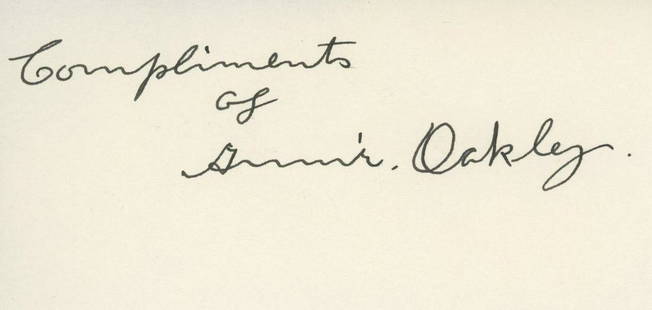 Compliments
of
Annie. Oakley.